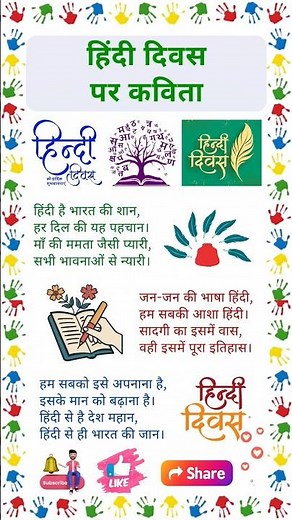 हिंदी दिवस
पर कविता
हिन्दी
दिवस
हिन्दी
दिवस
हिंदी है भारत की शान,
हर दिल की यह पहचान।
माँ की ममता जैसी प्यारी,
सभी भावनाओं से न्यारी।
जन-जन की भाषा हिंदी,
हम सबकी आशा हिंदी।
सादगी का इसमें वास,
वही इसमें पूरा इतिहास।
हम सबको इसे अपनाना है,
इसके मान को बढ़ाना है।
हिंदी से है देश महान,
हिंदी से ही भारत की जान।
हिन्दी
दिवस
Subscribe
LIKE
Share